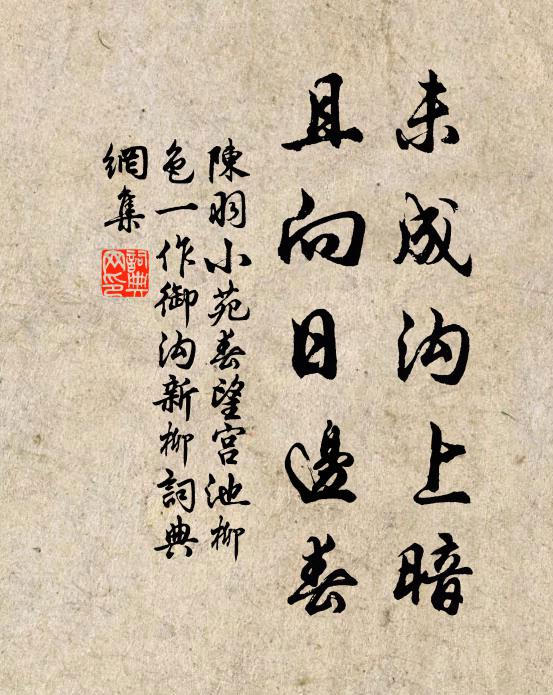 未成沟上暗
且向日邊春
陳羽小苑春望宫池柳
色一作御沟新柳詞典
網集
詞典
网印